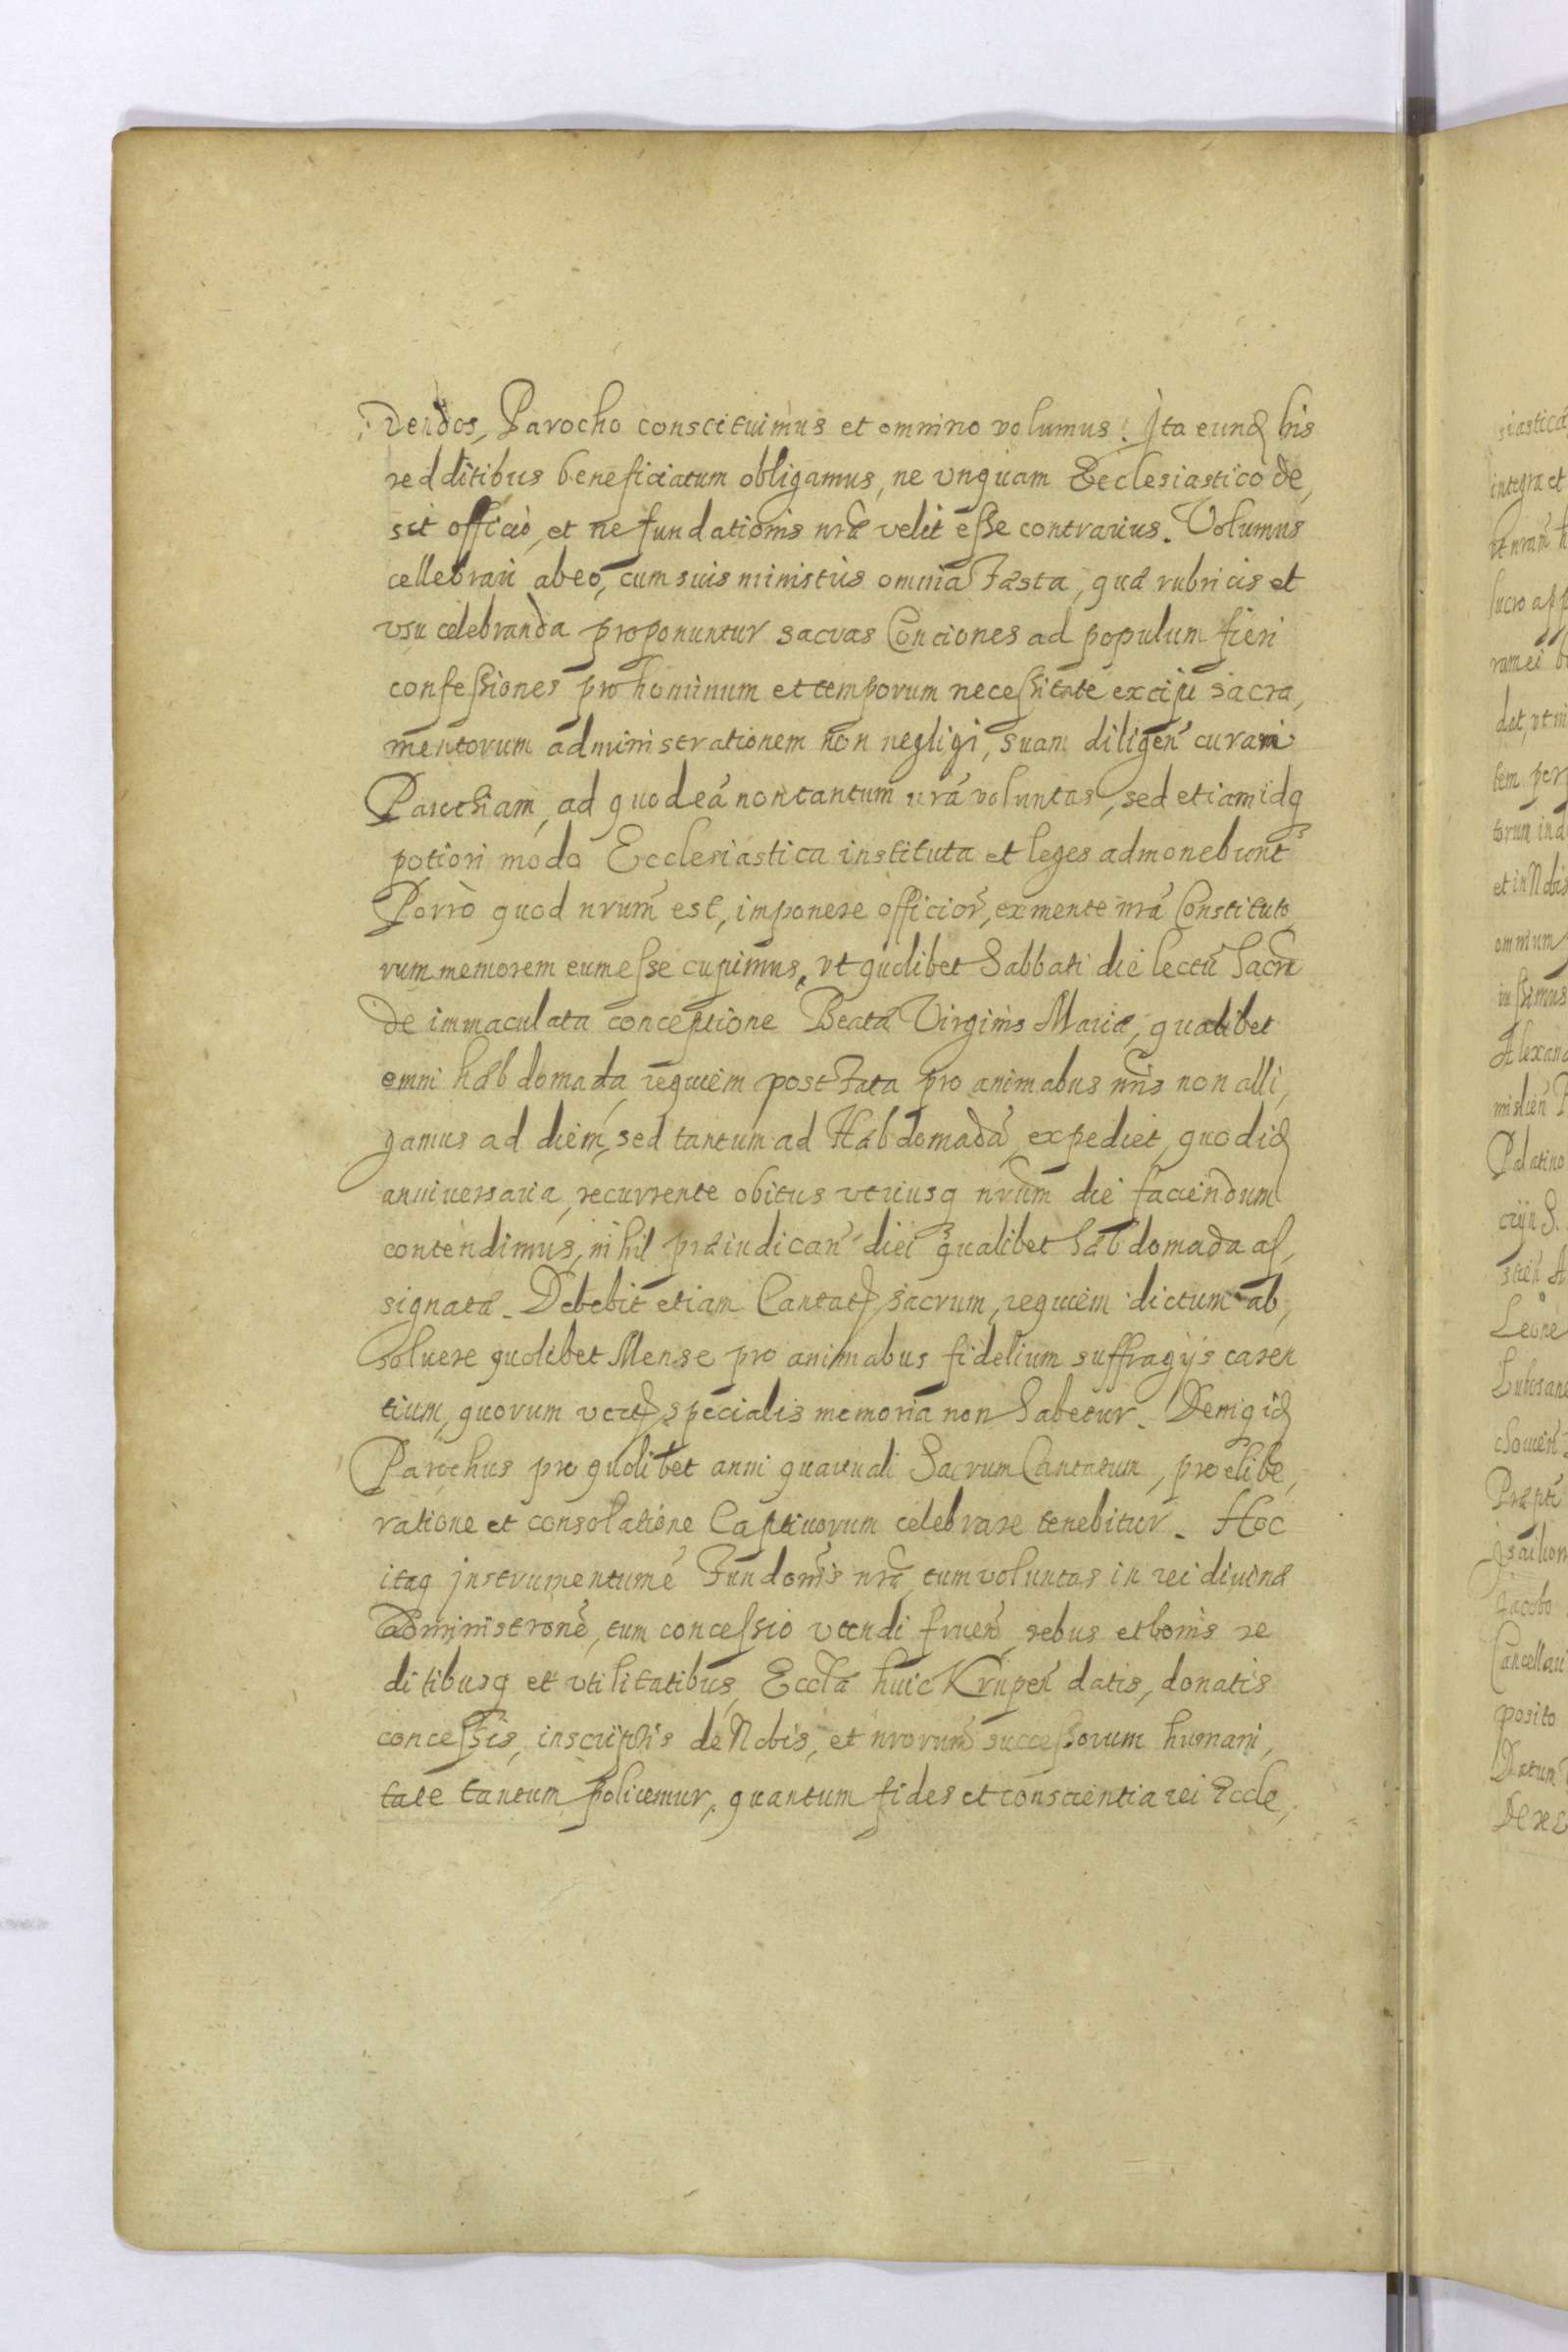 dendos, Parocho conscituimus et omnino volumus. Ita eundē his
redditibus beneficiatum obligamus, ne vnquam Ecclesiastico de,
sit officio, et ne fundationis nrã velit eſse contrarius. Volumus
cellebrari abeo, cum suis ministris omnia Fæsta, quæ rubricis et
vsu celebranda proponuntur sacras Conciones ad populum fieri
confeſsiones pro hominum et temporum neceſsitate excipi sacra,
mentorum administrationem non negligi, suam diligeñ curari
Parochiam, ad quod eã non tantum nrã voluntas, sed etiam idq
potiori modo Ecclesiastica instituta et leges admonebunt
Porrò quod nrum̃ est, imponere officior̃, ex mente nrã Constituto,
rum memorem eum eſse cupimus, vt quolibet Sabbati die lectũ Sacrũ
de immaculata conceptione Beatæ Virginis Mariæ, qualibet
omni hæbdomada requiem post Fata pro animabus nr̃is non alli,
gamus ad diem, sed tantum ad Hæbdomadã expediet, quod idē
anniversaria recurrente obitus vtriusq nrũm die faciendum
contendimus, nihil præiudicañ diei qualibet Hæbdomada aſ,
signatæ. Debebit etiam Cantatē sacrum, requiem dictum ab,
soluere quolibet Mense pro animabus fidelium suffragijs caren
tium, quorum specialis memoria non habetur. Deniq idē
Parochus pro quolibet anni quartuali Sacrum Cantatum, pro elibe,
ratione et consolatione Captiuorum celebrare tenebitur. Hoc
itaq jnstrumentumẽ Fundonĩs nrã, tum voluntas in rei diuinæ
Administronẽ, tum conceſsio vtendi frueñ rebus et bonis re
ditibusq et vtilitatibus, Eccłæ huic Krupeñ datis, donatis
conceſsis, inscriptis de Nobis, et nrorum̃ succeſsorum humani,
tate tantum policemur, quantum fides et conscientia rei Eccle,
siasticã
integra et
lucro app
dat, vt ni
tem per
torum ind
et in Nobis
omnium
Alexan
Palatino
Leone
Jacobo
Cancellari
posito
Datum